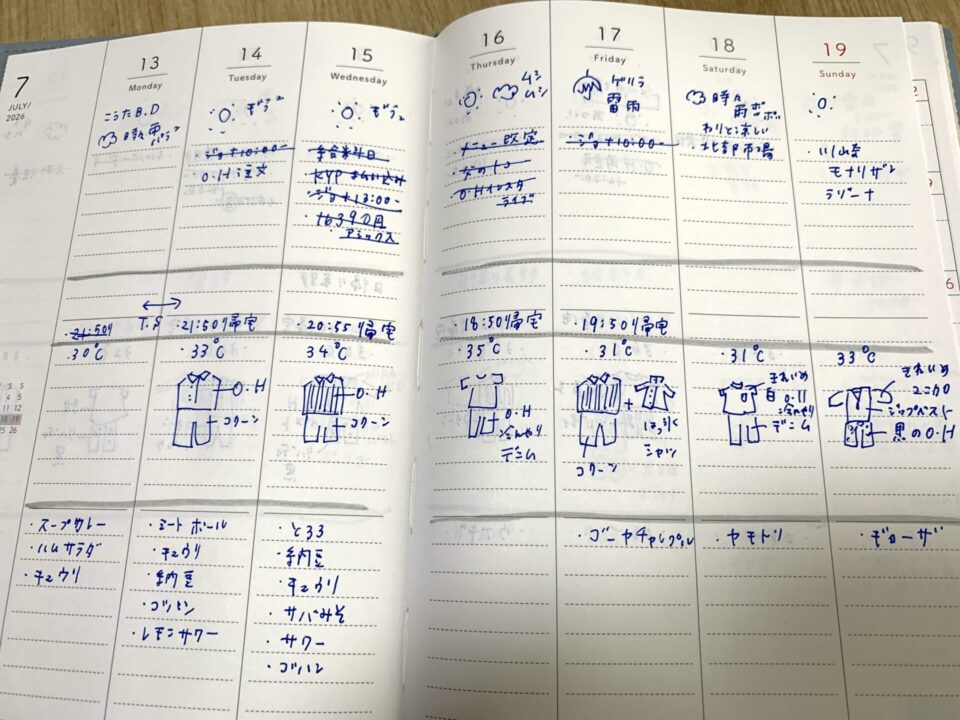 7
JULY/
2026
13
Monday
こうたB.D
時々雨
21:50頃
30℃
・スープカレー
・ハムサラダ
・キュウリ
14
Tuesday
・ジョナ10:00〜
・O.H注文
T.S
・21:50頃帰宅
・33℃
O.H
コクーン
・ミートボール
・キュウリ
・納豆
・ゴハン
・レモンサワー
15
Wednesday
・ジョナ13:00〜
・16390円
アミックス
・20:55頃帰宅
34℃
O.H
コクーン
・とろろ
・納豆
・キュウリ
・サバみそ
・サワー
・ゴハン
16
Thursday
ムシ
ムシ
・メニュー改定
・O.Hインスタ
ライブ
・18:50頃帰宅
・35℃
O.H
デニム
17
Friday
ゲリラ
雷雨
・ジョナ10:00〜
・19:50頃帰宅
・31℃
+
シャツ
コクーン
・ゴーヤチャンプル
18
Saturday
時々
雨
わりと涼しい
北部市場
・31℃
きれいめ
白
デニム
・ヤキトリ
19
Sunday
・川崎
モナリザン
ラゾーナ
33℃
きれいめ
ユニクロ
黒のO.H
・ギョーザ